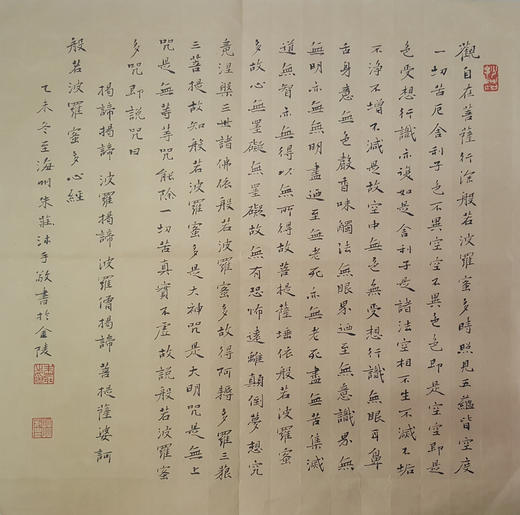 觀自在菩薩行深般若波羅蜜多時照見五蘊皆空度
一切苦厄舍利子色不異空空不異色色即是空空即是
色受想行識亦復如是舍利子是諸法空相不生不滅不垢
不淨不增不減是故空中無色無受想行識無眼耳鼻
舌身意無色聲香味觸法無眼界迺至無意識界無
無明亦無無明盡迺至無老死亦無老死盡無苦集滅
道無智亦無得以無所得故菩提薩埵依般若波羅蜜
多故心無罣礙無罣礙故無有恐怖遠離顛倒夢想究
竟涅槃三世諸佛依般若波羅蜜多故得阿耨多羅三藐
三菩提故知般若波羅蜜多是大神咒是大明咒是無上
咒是無等等咒能除一切苦真實不虛故說般若波羅蜜
多咒即說咒曰
揭諦揭諦 波羅揭諦 波羅僧揭諦 菩提薩婆訶
般若波羅蜜多心經
乙未冬至海州朱莊沐手敬書於金陵